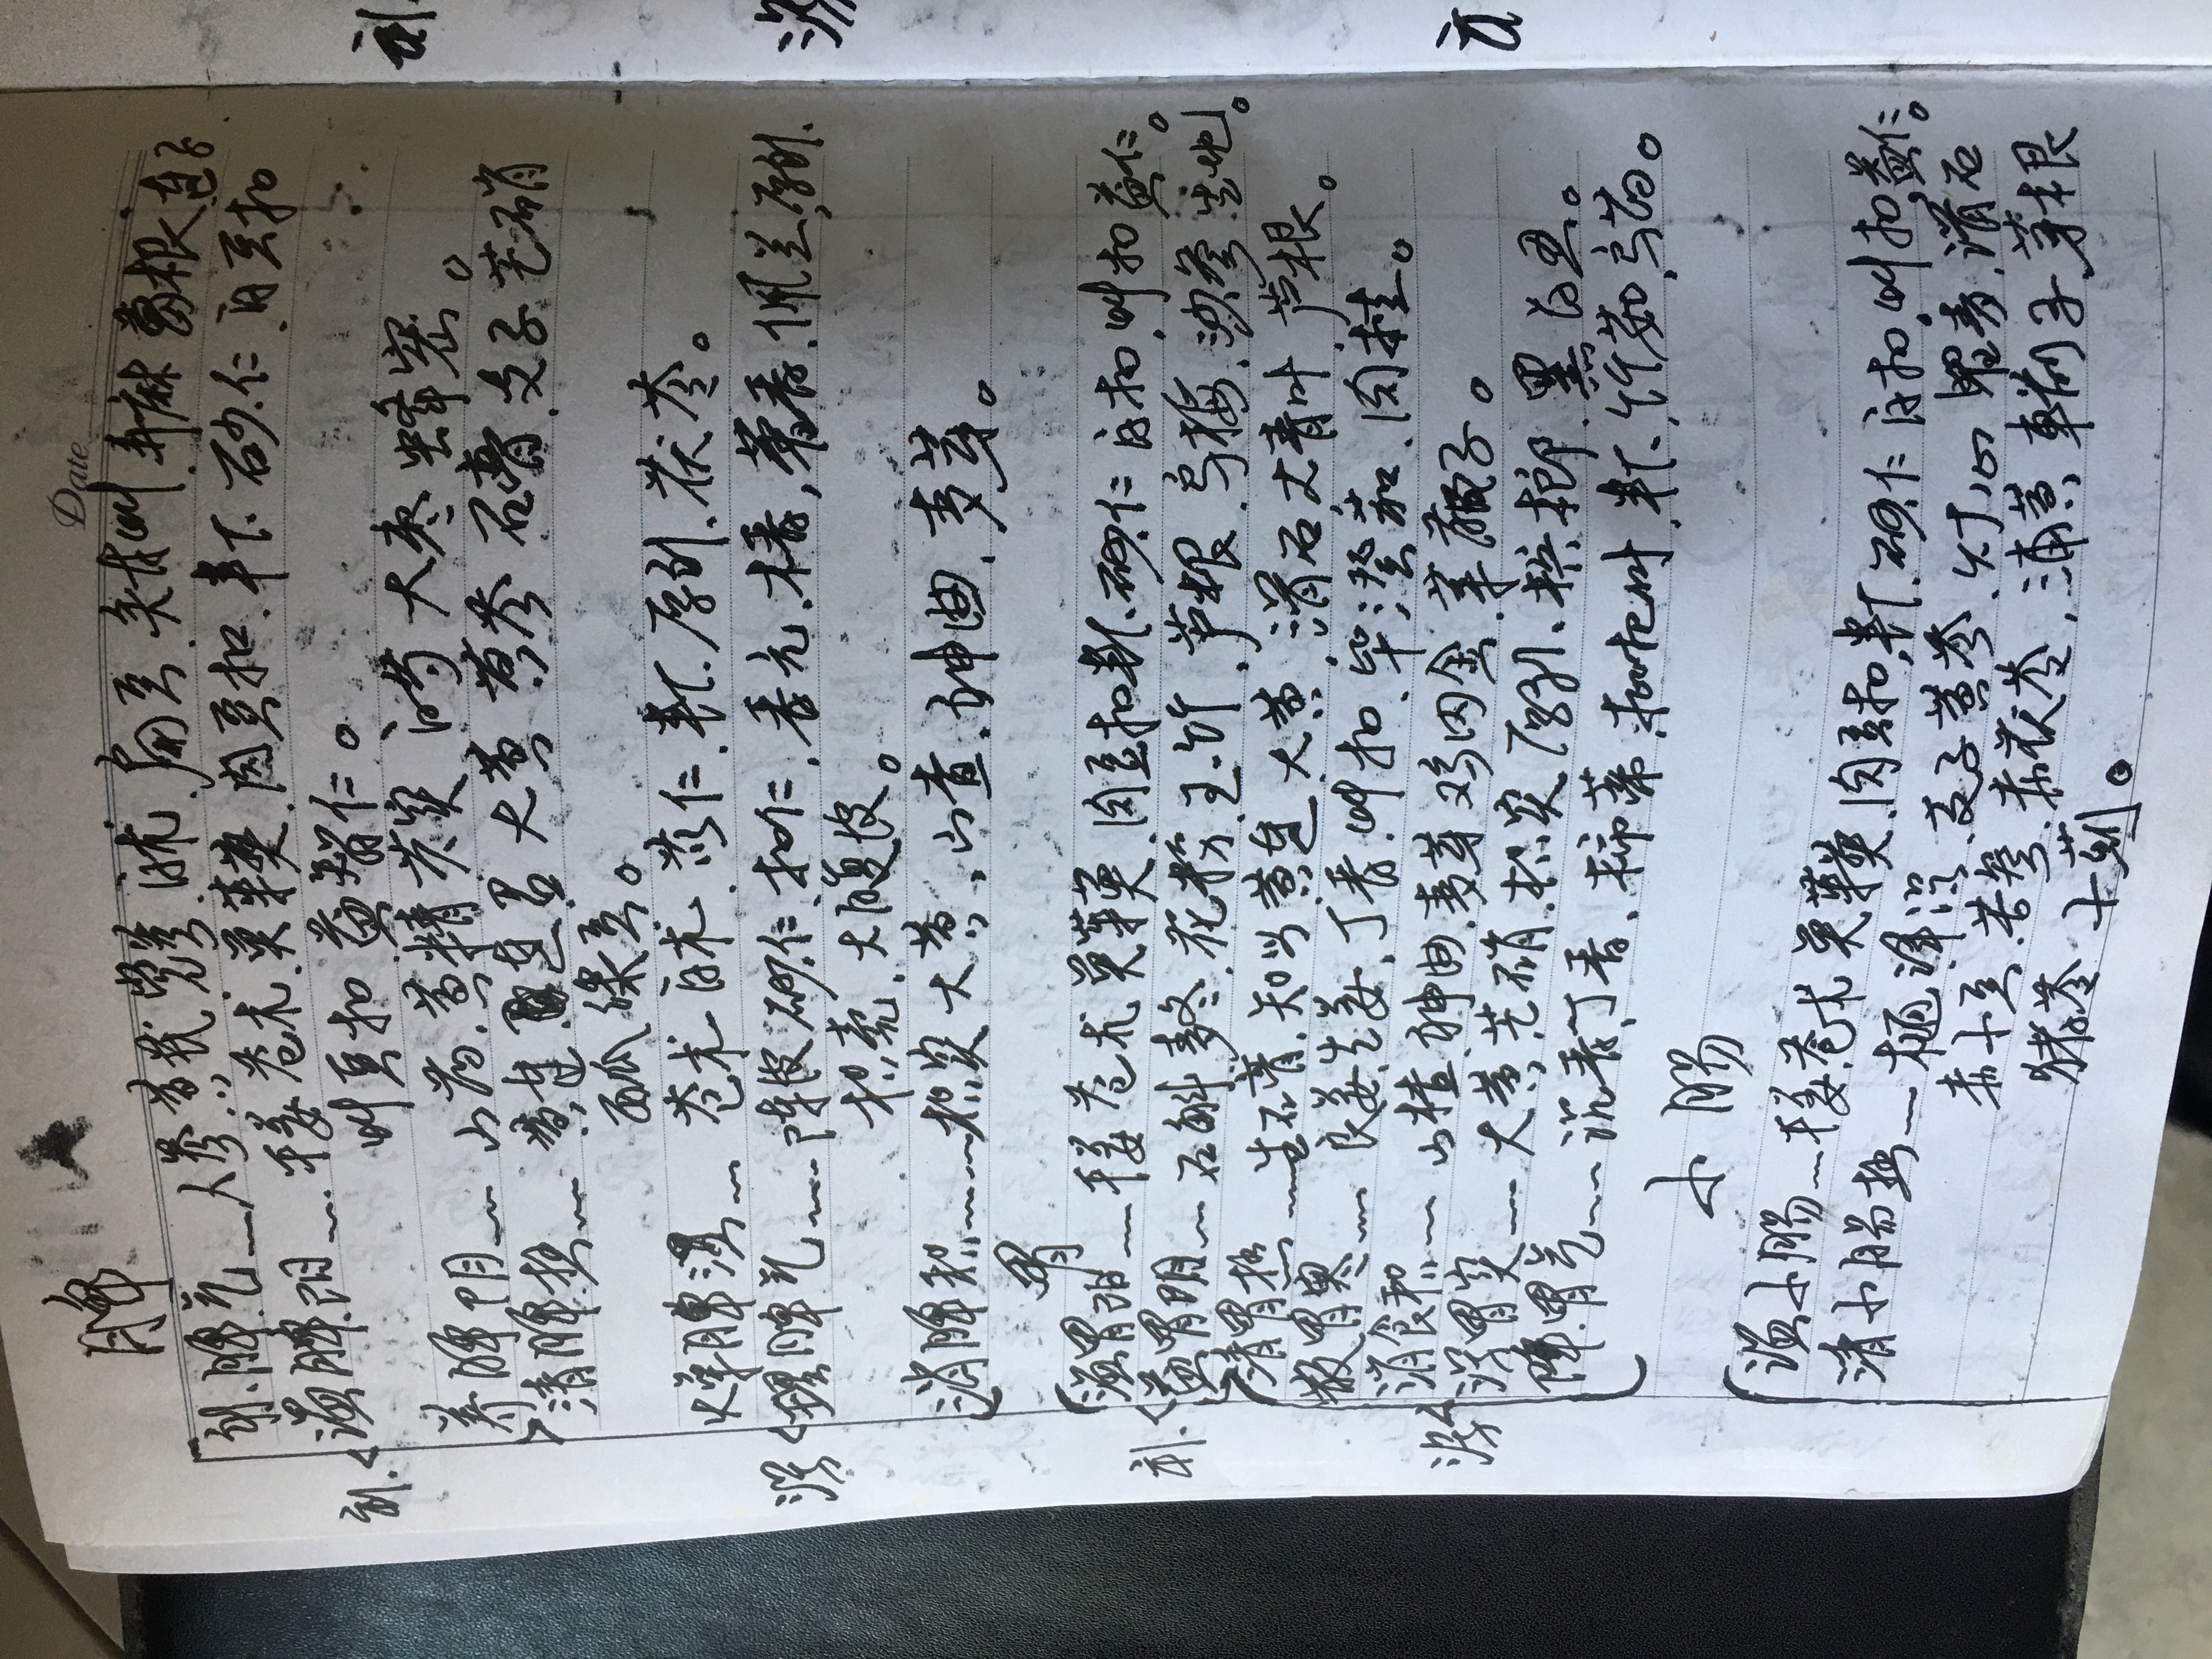 脾
Date
补脾气 人参 黄芪 党参 白术 扁豆 炙甘草 升麻 葛根 莲子
温脾阳 干姜 苍术 吴茱萸 肉豆扣 半下 砂仁 白豆扣
补
草豆扣 益智仁。
养脾阴 山药 黄精 芡实 白芍 大枣 蜂密。
清脾热 黄连 连召 大黄 黄芩 石膏 支子 芒硝
西瓜 绿豆。
燥脾湿 苍术 白术 苡仁 半下 厚朴 茯苓。
泻
理脾气 陈皮 砂仁 扣仁 香元 木香 藿香 佩兰 厚朴
枳壳 大腹皮。
消脾积 枳实 大黄 山查 神曲 麦芽。
胃
温胃阳 干姜 苍术 吴茱萸 肉豆扣 半下 砂仁 白扣 草扣 益仁。
补
益胃阴 石斛 麦冬 花粉 玉竹 芦根 乌梅 沙参 生地。
清胃热 生石膏 知母 黄连 大黄 滑石 大青叶 芦根。
散胃寒 良姜 生姜 丁香 草扣 毕澄茄 肉桂。
消食积 山楂 神曲 麦芽 鸡内金 莱菔子。
泻
泻胃实 大黄 芒硝 枳实 厚朴 槟榔 黑白丑。
降胃气 沉香 丁香 柿蒂 枇杷叶 半下 竹茹 乌药。
小肠
温小肠 干姜 苍术 吴茱萸 肉豆扣 半下 砂仁 白扣 草扣 益仁。
清小肠热 泽泻 支子 黄芩 灯心 瞿麦 滑石
赤小豆 苦参 赤茯苓 浦黄 車前子 茅根
猪苓 小蓟。
补
泻